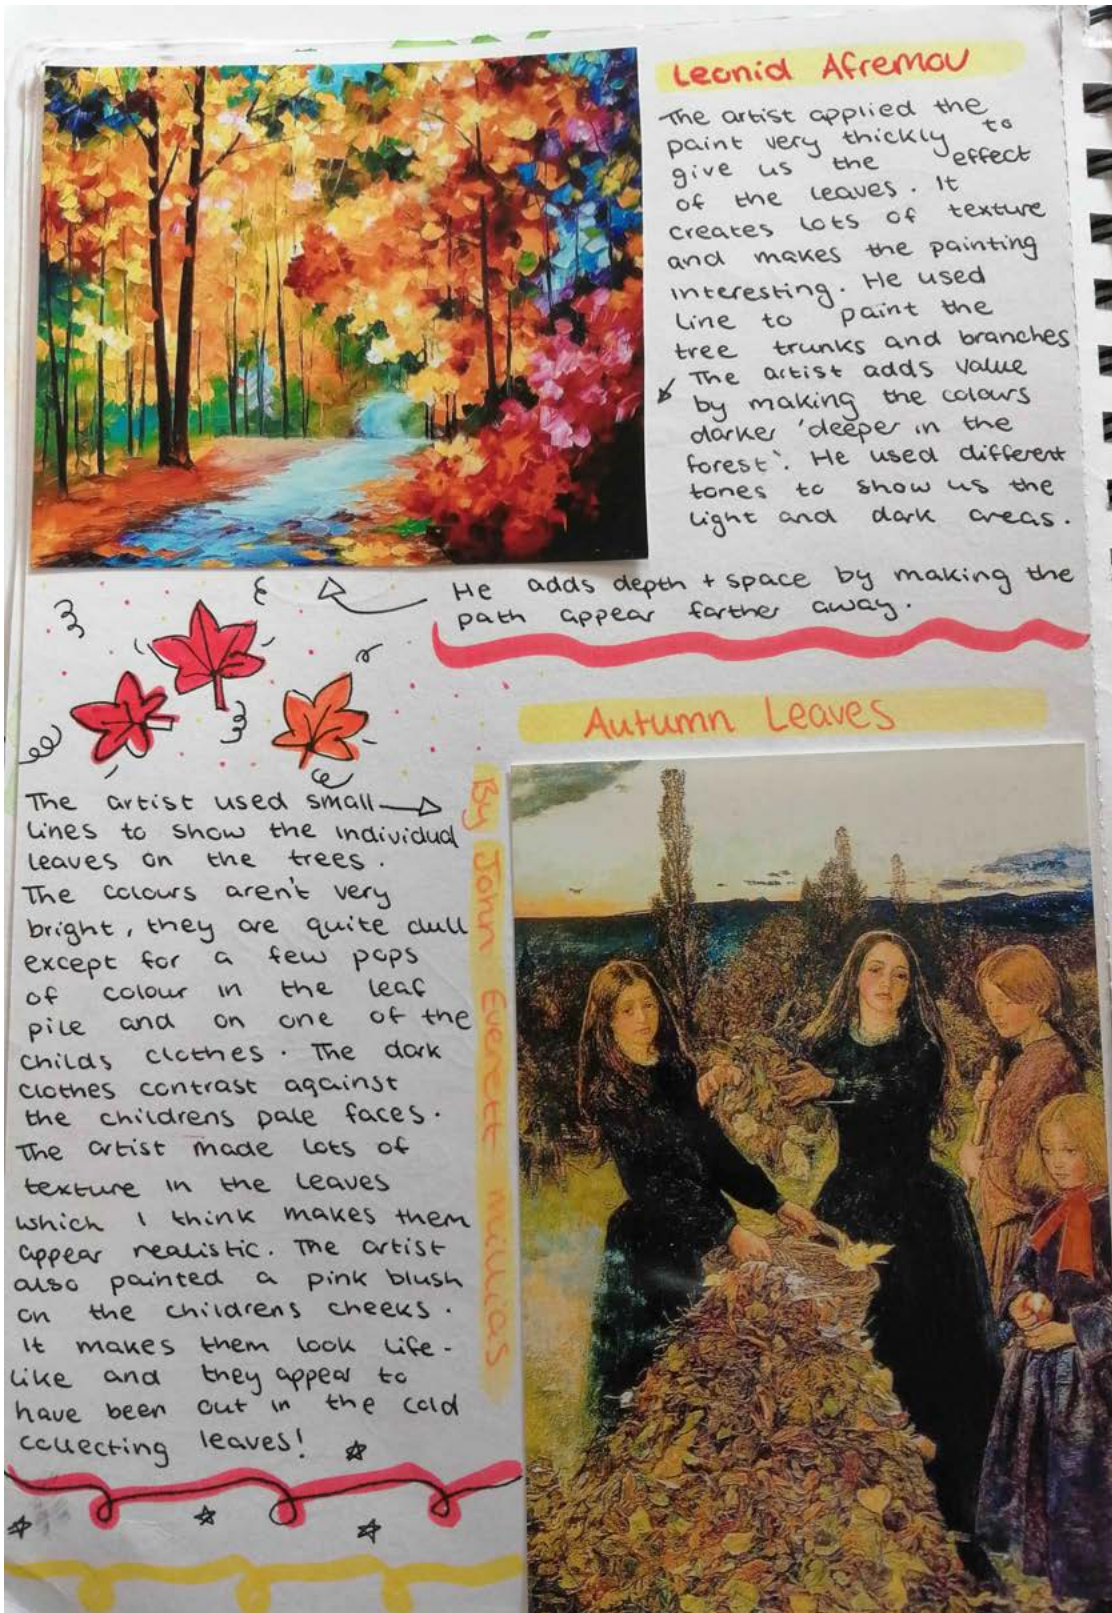 Leonid Afremov
The artist applied the
paint very thickly to
give us the effect
of the leaves. It
creates lots of texture
and makes the painting
interesting. He used
line to paint the
tree trunks and branches
The artist adds value
by making the colours
darker 'deeper in the
forest'. He used different
tones to show us the
light and dark areas.
He adds depth + space by making the
path appear farther away.
Autumn Leaves
By John Everett Millias
The artist used small
lines to show the individual
leaves on the trees.
The colours aren't very
bright, they are quite dull
except for a few pops
of colour in the leaf
pile and on one of the
childs clothes. The dark
clothes contrast against
the childrens pale faces.
The artist made lots of
texture in the leaves
which I think makes them
appear realistic. The artist
also painted a pink blush
on the childrens cheeks.
It makes them look life-
like and they appear to
have been out in the cold
collecting leaves!